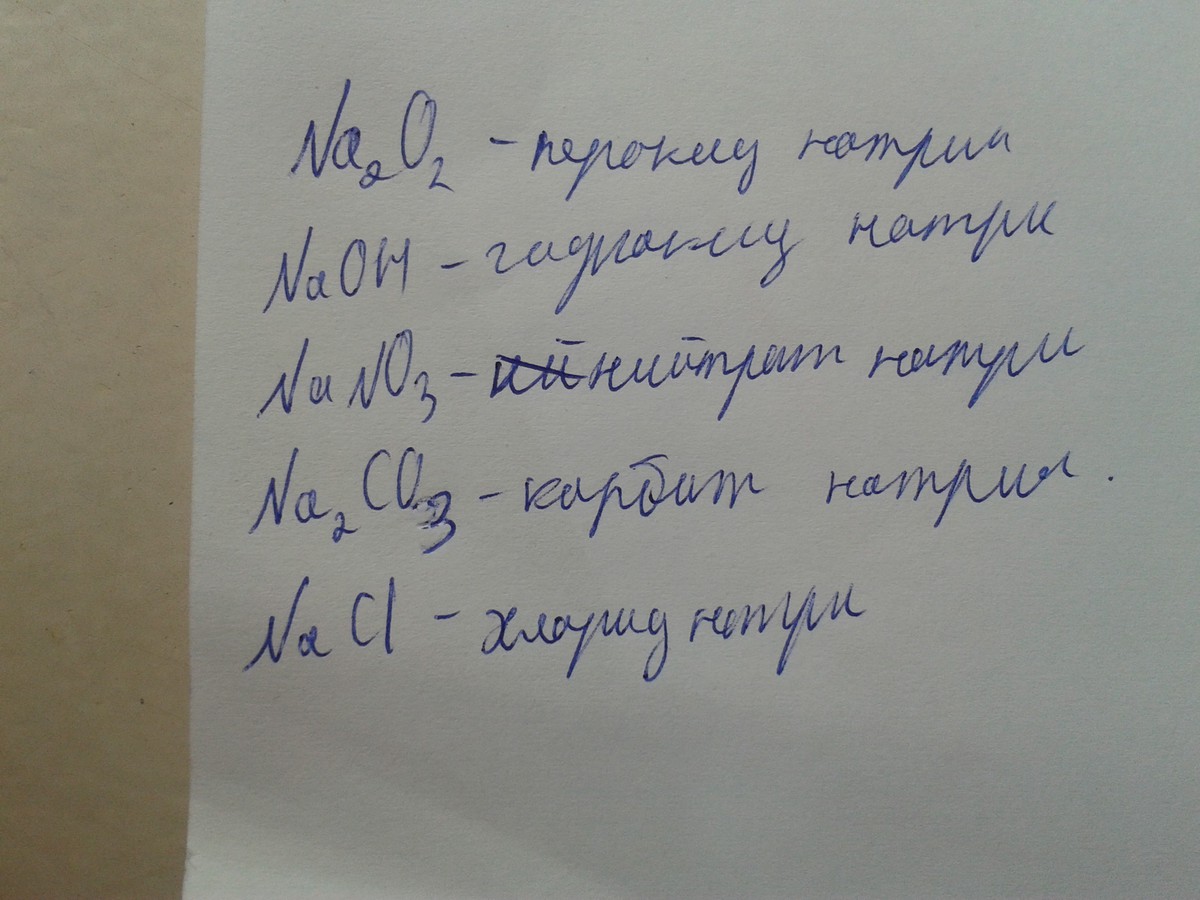 Na₂O₂ - пероксид натрия
NaOH - гидроксид натри
NaNO₃ - нийтрат натри
Na₂CO₃ - карбат натрия.
NaCl - хлорид натри